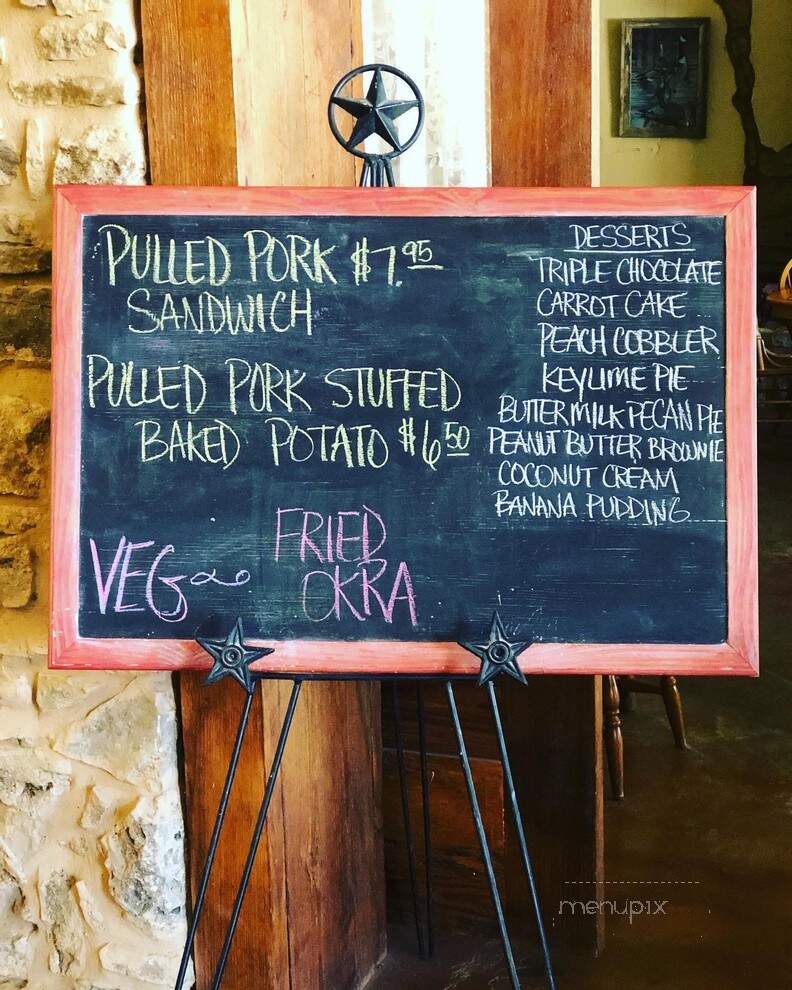 PULLED PORK $7.95
SANDWICH
PULLED PORK STUFFED
BAKED POTATO $6.50
VEG~
FRIED
OKRA
DESSERTS
TRIPLE CHOCOLATE
CARROT CAKE
PEACH COBBLER
KEYLIME PIE
BUTTERMILK PECAN PIE
PEANUT BUTTER BROWNIE
COCONUT CREAM
BANANA PUDDING
menupix